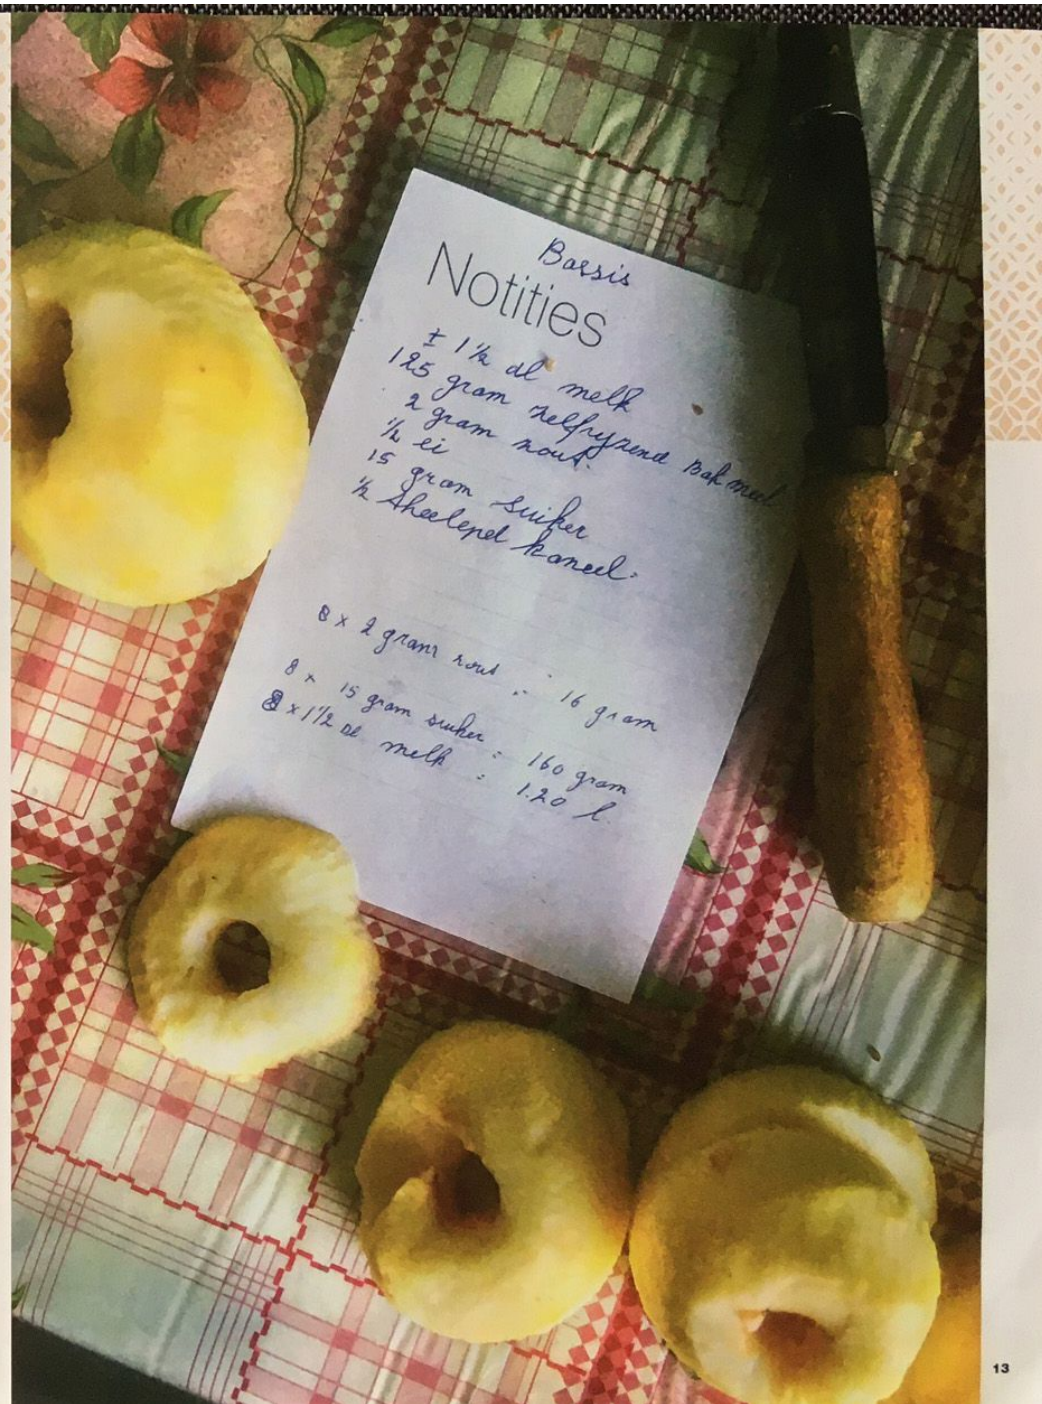 Bassis
Notities
± 1 1/2 dl melk
125 gram zelfryzend Bakmeel
2 gram zout.
1/2 ei
15 gram suiker
1/2 theelepel kaneel.
8 x 2 gram zout = 16 gram
8 x 15 gram suiker = 160 gram
8 x 1 1/2 dl melk = 1.20 l.
13